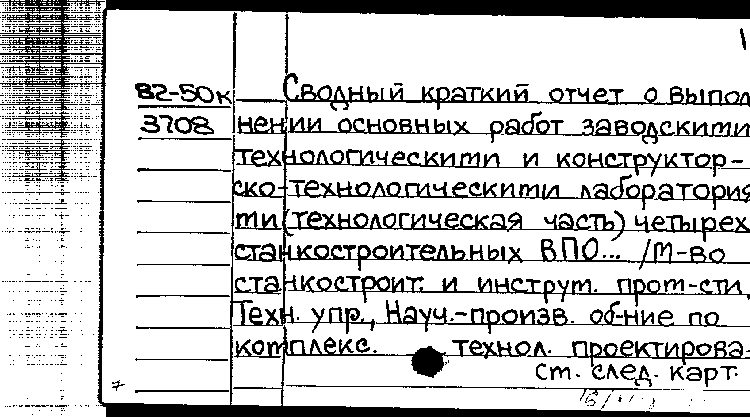 1
82-50к Сводный краткий отчет о выпол
3708 нении основных работ заводскими
технологическими и конструктор-
ско-технологическими лаборатория
ми (технологическая часть) четырех
станкостроительных ВПО... /М-во
станкостроит. и инструм. пром-сти,
Техн. упр., Науч.-произв. об-ние по
комплекс. технол. проектирова-
см. след. карт.